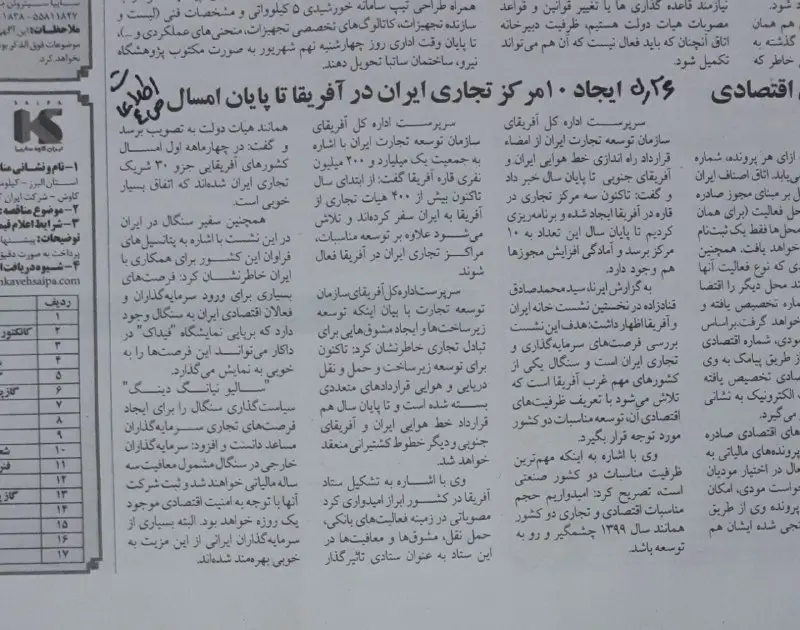 همراه طراحی تیپ سامانه خورشیدی ۵ کیلوواتی و مشخصات فنی (لیست و
سازنده تجهیزات، کاتالوگ‌های تخصصی تجهیزات، منحنی‌های عملکردی و ...)،
تا پایان وقت اداری روز چهارشنبه نهم شهریور به صورت مکتوب پژوهشگاه
نیرو، ساختمان ساتبا تحویل دهند.
نیازمند قاعده گذاری ها یا تغییر قوانین و قواعد
مصوبات هیات دولت هستیم، ظرفیت دبیرخانه
اتاق آنچنان که باید فعال نیست که آن هم می‌تواند
تکمیل شود.
۵،۲۶
ایجاد ۱۰مرکز تجاری ایران در آفریقا تا پایان امسال
اطلاعات
سرپرست اداره کل آفریقای
سازمان توسعه تجارت ایران از امضاء
قرارداد راه اندازی خط هوایی ایران و
آفریقای جنوبی تا پایان سال خبر داد
و گفت: تاکنون سه مرکز تجاری در
قاره آفریقا ایجاد شده و برنامه‌ریزی
کردیم تا پایان سال این تعداد به ۱۰
مرکز برسد و آمادگی افزایش مجوزها
هم وجود دارد.
به گزارش ایرنا، سیدمحمدصادق
قنادزاده در نخستین نشست خانه ایران
و آفریقا اظهار داشت: هدف این نشست
بررسی فرصت‌های سرمایه‌گذاری و
تجاری ایران است و سنگال یکی از
کشورهای مهم غرب آفریقا است که
تلاش می‌شود با تعریف ظرفیت‌های
اقتصادی آن، توسعه مناسبات دو کشور
مورد توجه قرار بگیرد.
وی با اشاره به اینکه مهم‌ترین
ظرفیت مناسبات دو کشور صنعتی
است، تصریح کرد: امیدواریم حجم
مناسبات اقتصادی و تجاری دو کشور
همانند سال ۱۳۹۹ چشمگیر و رو به
توسعه باشد.
سرپرست اداره کل آفریقای
سازمان توسعه تجارت ایران با اشاره
به جمعیت یک میلیارد و ۲۰۰ میلیون
نفری قاره آفریقا گفت: از ابتدای سال
تاکنون بیش از ۴۰۰ هیات تجاری از
آفریقا به ایران سفر کرده‌اند و تلاش
می‌شود علاوه بر توسعه مناسبات،
مراکز تجاری ایران در آفریقا فعال
شوند.
سرپرست‌اداره‌کل‌آفریقای‌سازمان
توسعه تجارت با بیان اینکه توسعه
زیرساخت‌ها و ایجاد مشوق‌هایی برای
تبادل تجاری خاطرنشان کرد: تاکنون
برای توسعه زیرساخت و حمل و نقل
دریایی و هوایی قراردادهای متعددی
بسته شده است و تا پایان سال هم
قرارداد خط هوایی ایران و آفریقای
جنوبی و دیگر خطوط کشتیرانی منعقد
خواهد شد.
وی با اشاره به تشکیل ستاد
آفریقا در کشور ابراز امیدواری کرد
مصوباتی در زمینه فعالیت‌های بانکی،
حمل نقل، مشوق‌ها و معافیت‌ها در
این ستاد به عنوان ستادی تاثیرگذار
همانند هیات دولت به تصویب برسد
و گفت: در چهارماهه اول امسال
کشورهای آفریقایی جزو ۳۰ شریک
تجاری ایران شده‌اند که اتفاق بسیار
خوبی است.
همچنین سفیر سنگال در ایران
در این نشست با اشاره به پتانسیل‌های
فراوان این کشور برای همکاری با
ایران خاطرنشان کرد: فرصت‌های
بسیاری برای ورود سرمایه‌گذاران و
فعالان اقتصادی ایران به سنگال وجود
دارد که برپایی نمایشگاه "فیداک" در
داکار می‌تواند این فرصت‌ها را به
خوبی به نمایش می‌گذارد.
"سالیو نیانگ دینگ"
سیاست‌گذاری سنگال را برای ایجاد
فرصت‌های تجاری سرمایه‌گذاران
مساعد دانست و افزود: سرمایه‌گذاران
خارجی در سنگال مشمول معافیت سه
ساله مالیاتی خواهند شد و ثبت شرکت
آنها با توجه به امنیت اقتصادی موجود
یک روزه خواهد بود. البته بسیاری از
سرمایه‌گذاران ایرانی از این مزیت به
خوبی بهره‌مند شده‌اند.
اقتصادی
ازای هر پرونده، شماره
ملاحظات:
SAIPA
۱- نام و نشانی
استان البرز -
کاوش - شرکت ایران
۲- موضوع مناقصه:
۳- شرایط اعلام
توضیحات:
پرداخت به صورت
۴- شیوه دریافت
nkavehsaipa.com
ردیف
۱
۲
۳
۴
۵
۶
۷
۸
۹
۱۰
۱۱
۱۲
۱۳
۱۴
۱۵
۱۶
۱۷